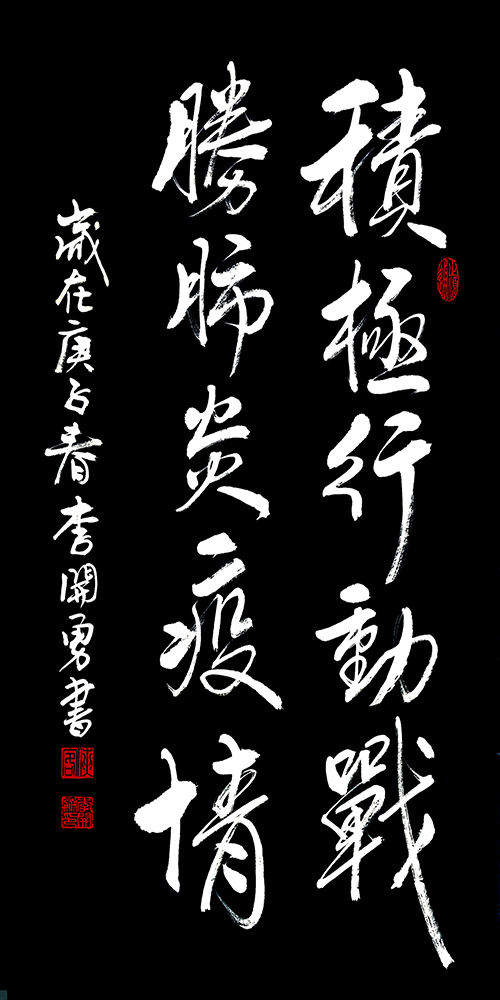 積極行動戰
勝肺炎疫情
歲在庚子春李開勇書